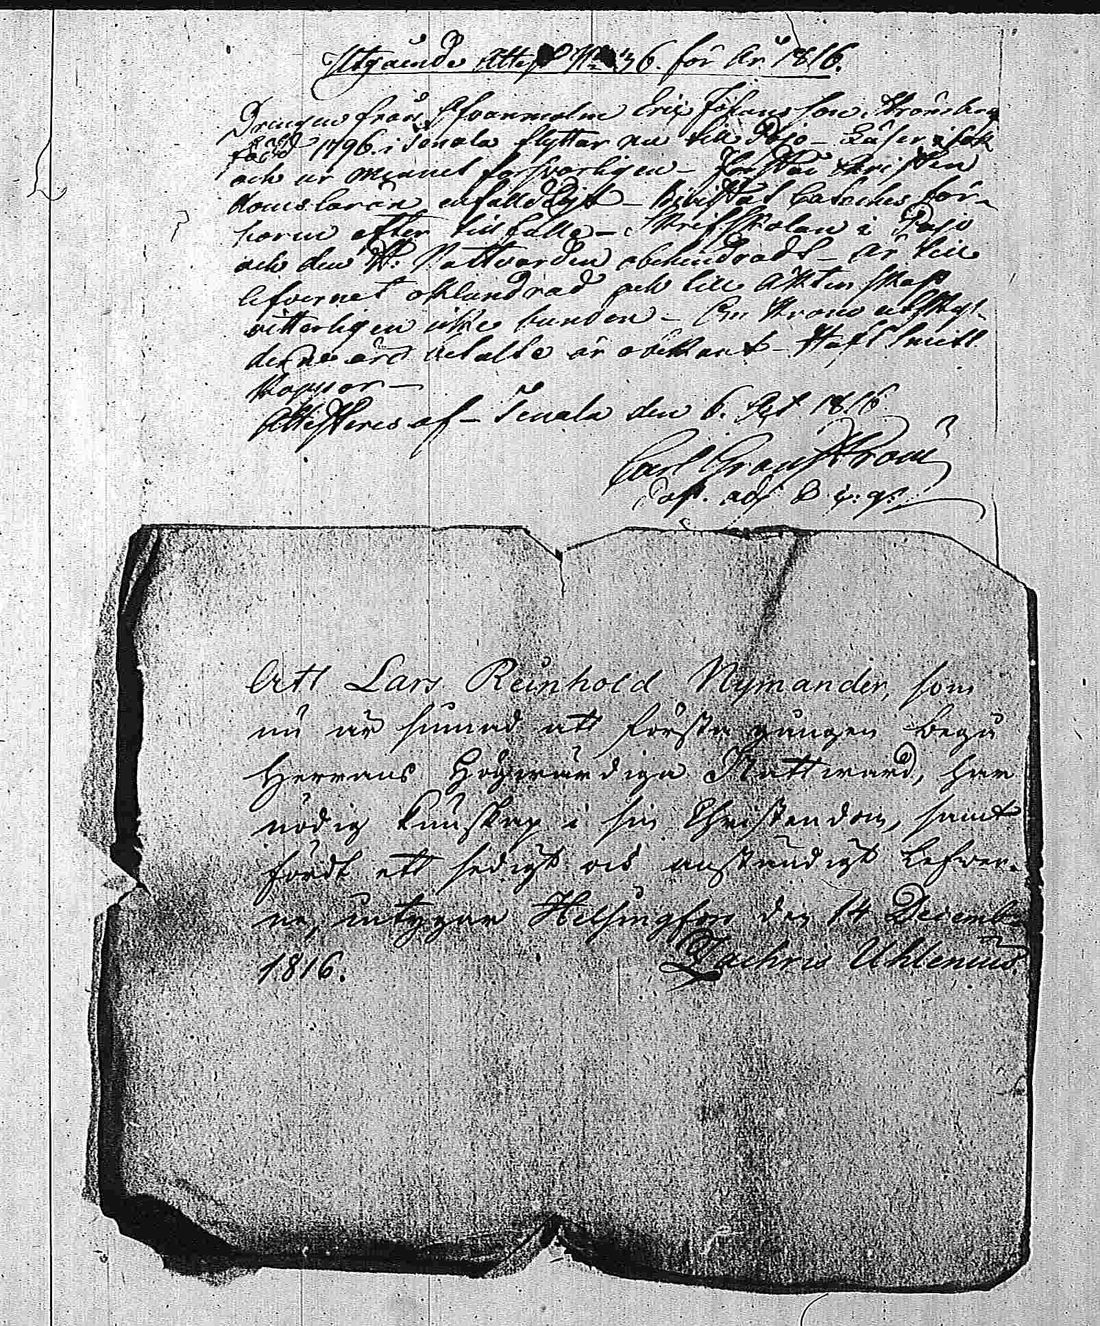 Utgående Attest No 36. för År 1816.
Drengen från Svanmalm Eric Johansson Strömberg
född 1796. i Tenala flyttar nu till Pojo – Läser i bok
och ur minnet försvarligen – förstår Christen
doms läran enfalldigt – bivistat Catechis för-
hören efter tillfälle – Skriftskolan i Pojo
och den H. Nattvarden obehindradt – är till
lefvernet oklandrad och till Äktenskap
vitterligen icke bunden – Om Krono utskyl-
derne äro betalte är obekant – Haft
koppor –
Attesteres af – Tenala den 6. 1816
Carl Granström
Past. adj
Att Lars Reinhold Nymander, som
nu är sinnad att första gången begå
Herrans Högwärdiga Nattward, har
nödig kunskap i sin Christendom, samt
fördt ett sedigt och anständigt Lefwer-
ne, intygar Helsingfors den 14 Decemb
1816. Zachris Uhlenius